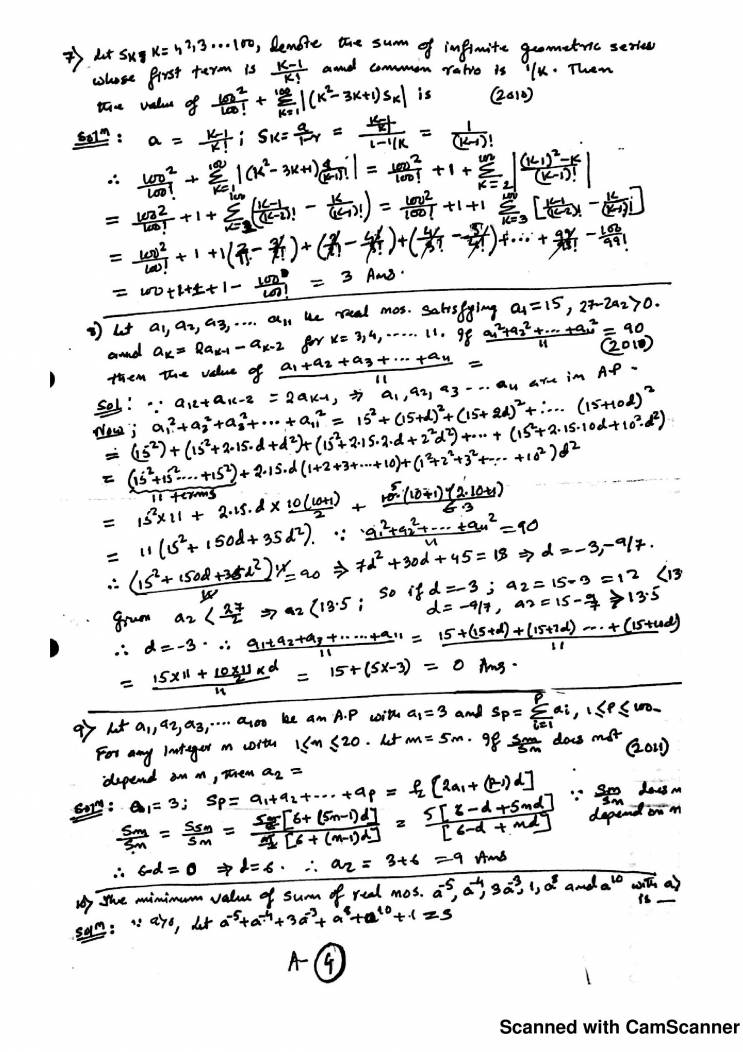 7) Let SK, K= 1,2,3...100, denote the sum of infinite geometric series
whose first term is K-1/K! and common ratio is 1/K. Then
the value of 100²/100! + Σ(K=1 to 100) |(K²-3K+1) SK| is (2010)
Solⁿ: a = K-1/K! ; SK = a/1-r = (K-1/K!)/(1-1/K) = 1/(K-1)!
∴ 100²/100! + Σ(K=1 to 100) |(K²-3K+1) 1/(K-1)!| = 100²/100! + 1 + Σ(K=2 to 100) |(K-1)²-K/(K-1)!|
= 100²/100! + 1 + Σ (K-1/(K-2)! - K/(K-1)!) = 100²/100! + 1+1 Σ(K=3 to 100) [K-1/(K-2)! - K/(K-1)!]
= 100²/100! + 1 + 1(2/1! - 3/2!) + (3/2! - 4/3!) + (4/3! - 5/4!) + ... + 99/98! - 100/99!
= 100+1+1+1 - 100²/100! = 3 Ans.
8) Let a1, a2, a3, .... a11 be real nos. satisfying a1=15, 27-2a2>0.
and aK = 2aK-1 - aK-2 for K= 3,4, ...... 11. If a1²+a2²+...+a11²/11 = 90
then the value of a1+a2+a3+...+a11/11 = (2010)
Sol: ∵ aK+aK-2 = 2aK-1, ⇒ a1, a2, a3 ... a11 are in A.P.
Now; a1²+a2²+a3²+...+a11² = 15²+(15+d)²+(15+2d)²+.... (15+10d)²
= (15²)+(15²+2.15.d+d²)+(15²+2.15.2.d+2²d²)+...+(15²+2.15.10d+10².d²)
= (15²+15²....+15²)+2.15.d(1+2+3+...+10)+(1²+2²+3²+...+10²)d²
11 terms
= 15²×11 + 2.15.d × 10(10+1)/2 + 10.(10+1)(2.10+1)/6
= 11(15²+150d+35d²). ∵ a1²+a2²+...+a11²/11 = 90
∴ (15²+150d+35d²)11/11 = 90 ⇒ 7d²+30d+45=18 ⇒ d=-3,-9/7.
given a2 < 27/2 ⇒ a2<13.5 ; So if d=-3 ; a2=15-3=12 <13
d=-9/7, a2=15-9/7 >13.5
∴ d=-3. ∴ a1+a2+a3+.....+a11/11 = 15+(15+d)+(15+2d) ...+(15+10d)/11
= 15×11 + 10×11/2 × d/11 = 15+(5×-3) = 0 Ans.
9) Let a1, a2, a3, .... a100 be an A.P with a1=3 and Sp= Σ(i=1 to p) ai, 1≤p≤100.
For any Integer n with 1≤n≤20. Let m=5n. If Sm/Sn does not (2011)
depend on n, then a2 =
Solⁿ: a1=3; Sp= a1+a2+...+ap = p/2 [2a1+(p-1)d] ∵ Sm/Sn does n
Sm/Sn = S5n/Sn = 5n/2[6+(5n-1)d]/n/2[6+(n-1)d] = 5[6-d+5nd]/[6-d+nd] depend on n
∴ 6-d=0 ⇒ d=6. ∴ a2 = 3+6=9 Ans
10) The minimum value of sum of real nos. a⁻⁵, a⁻⁴, 3a⁻³, 1, a⁸ and a¹⁰ with a>
is —
Solⁿ: ∵ a>0, Let a⁻⁵+a⁻⁴+3a⁻³+a⁸+a¹⁰+1=S
A-4
Scanned with CamScanner